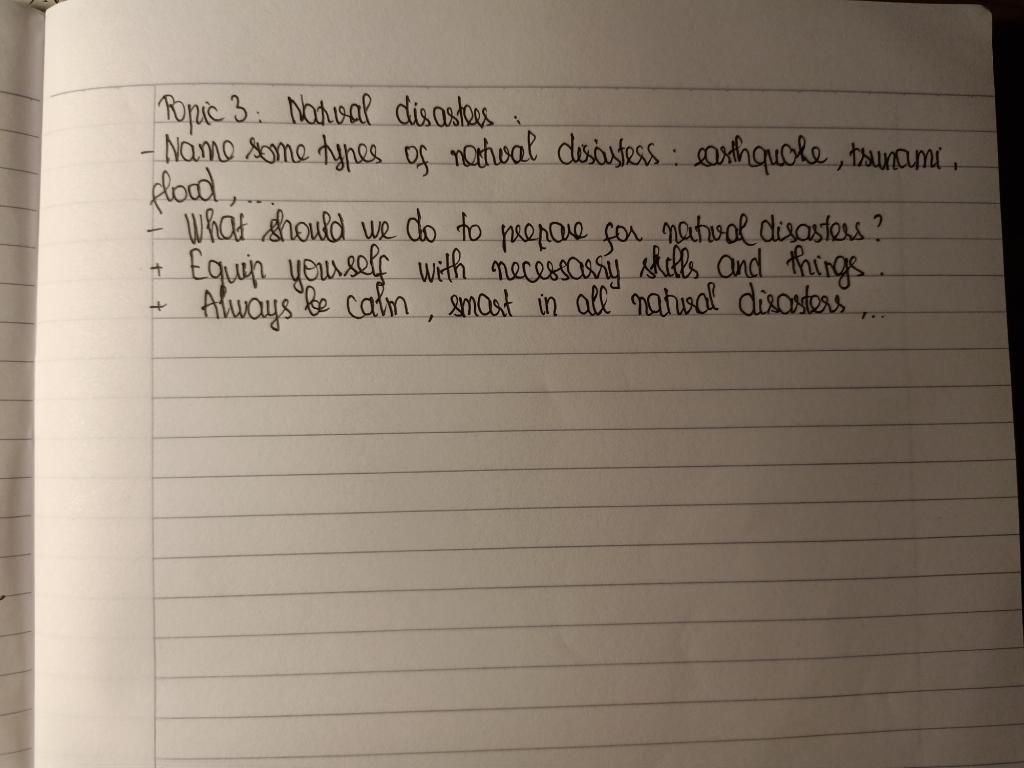 Topic 3: Natural disasters :
- Name some types of natural disasters : earthquake, tsunami,
flood, ...
- What should we do to prepare for natural disasters?
+ Equip yourself with necessary skills and things.
+ Always be calm, smart in all natural disasters,...